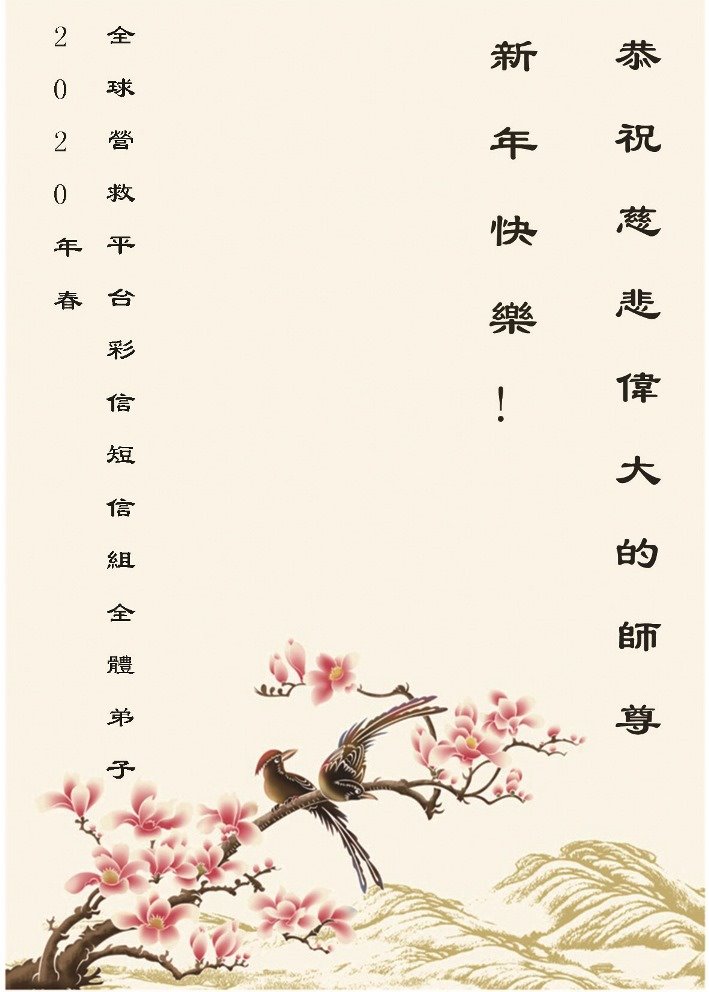 恭祝慈悲偉大的師尊
新年快樂！
全球營救平台彩信短信組全體弟子
2020年春